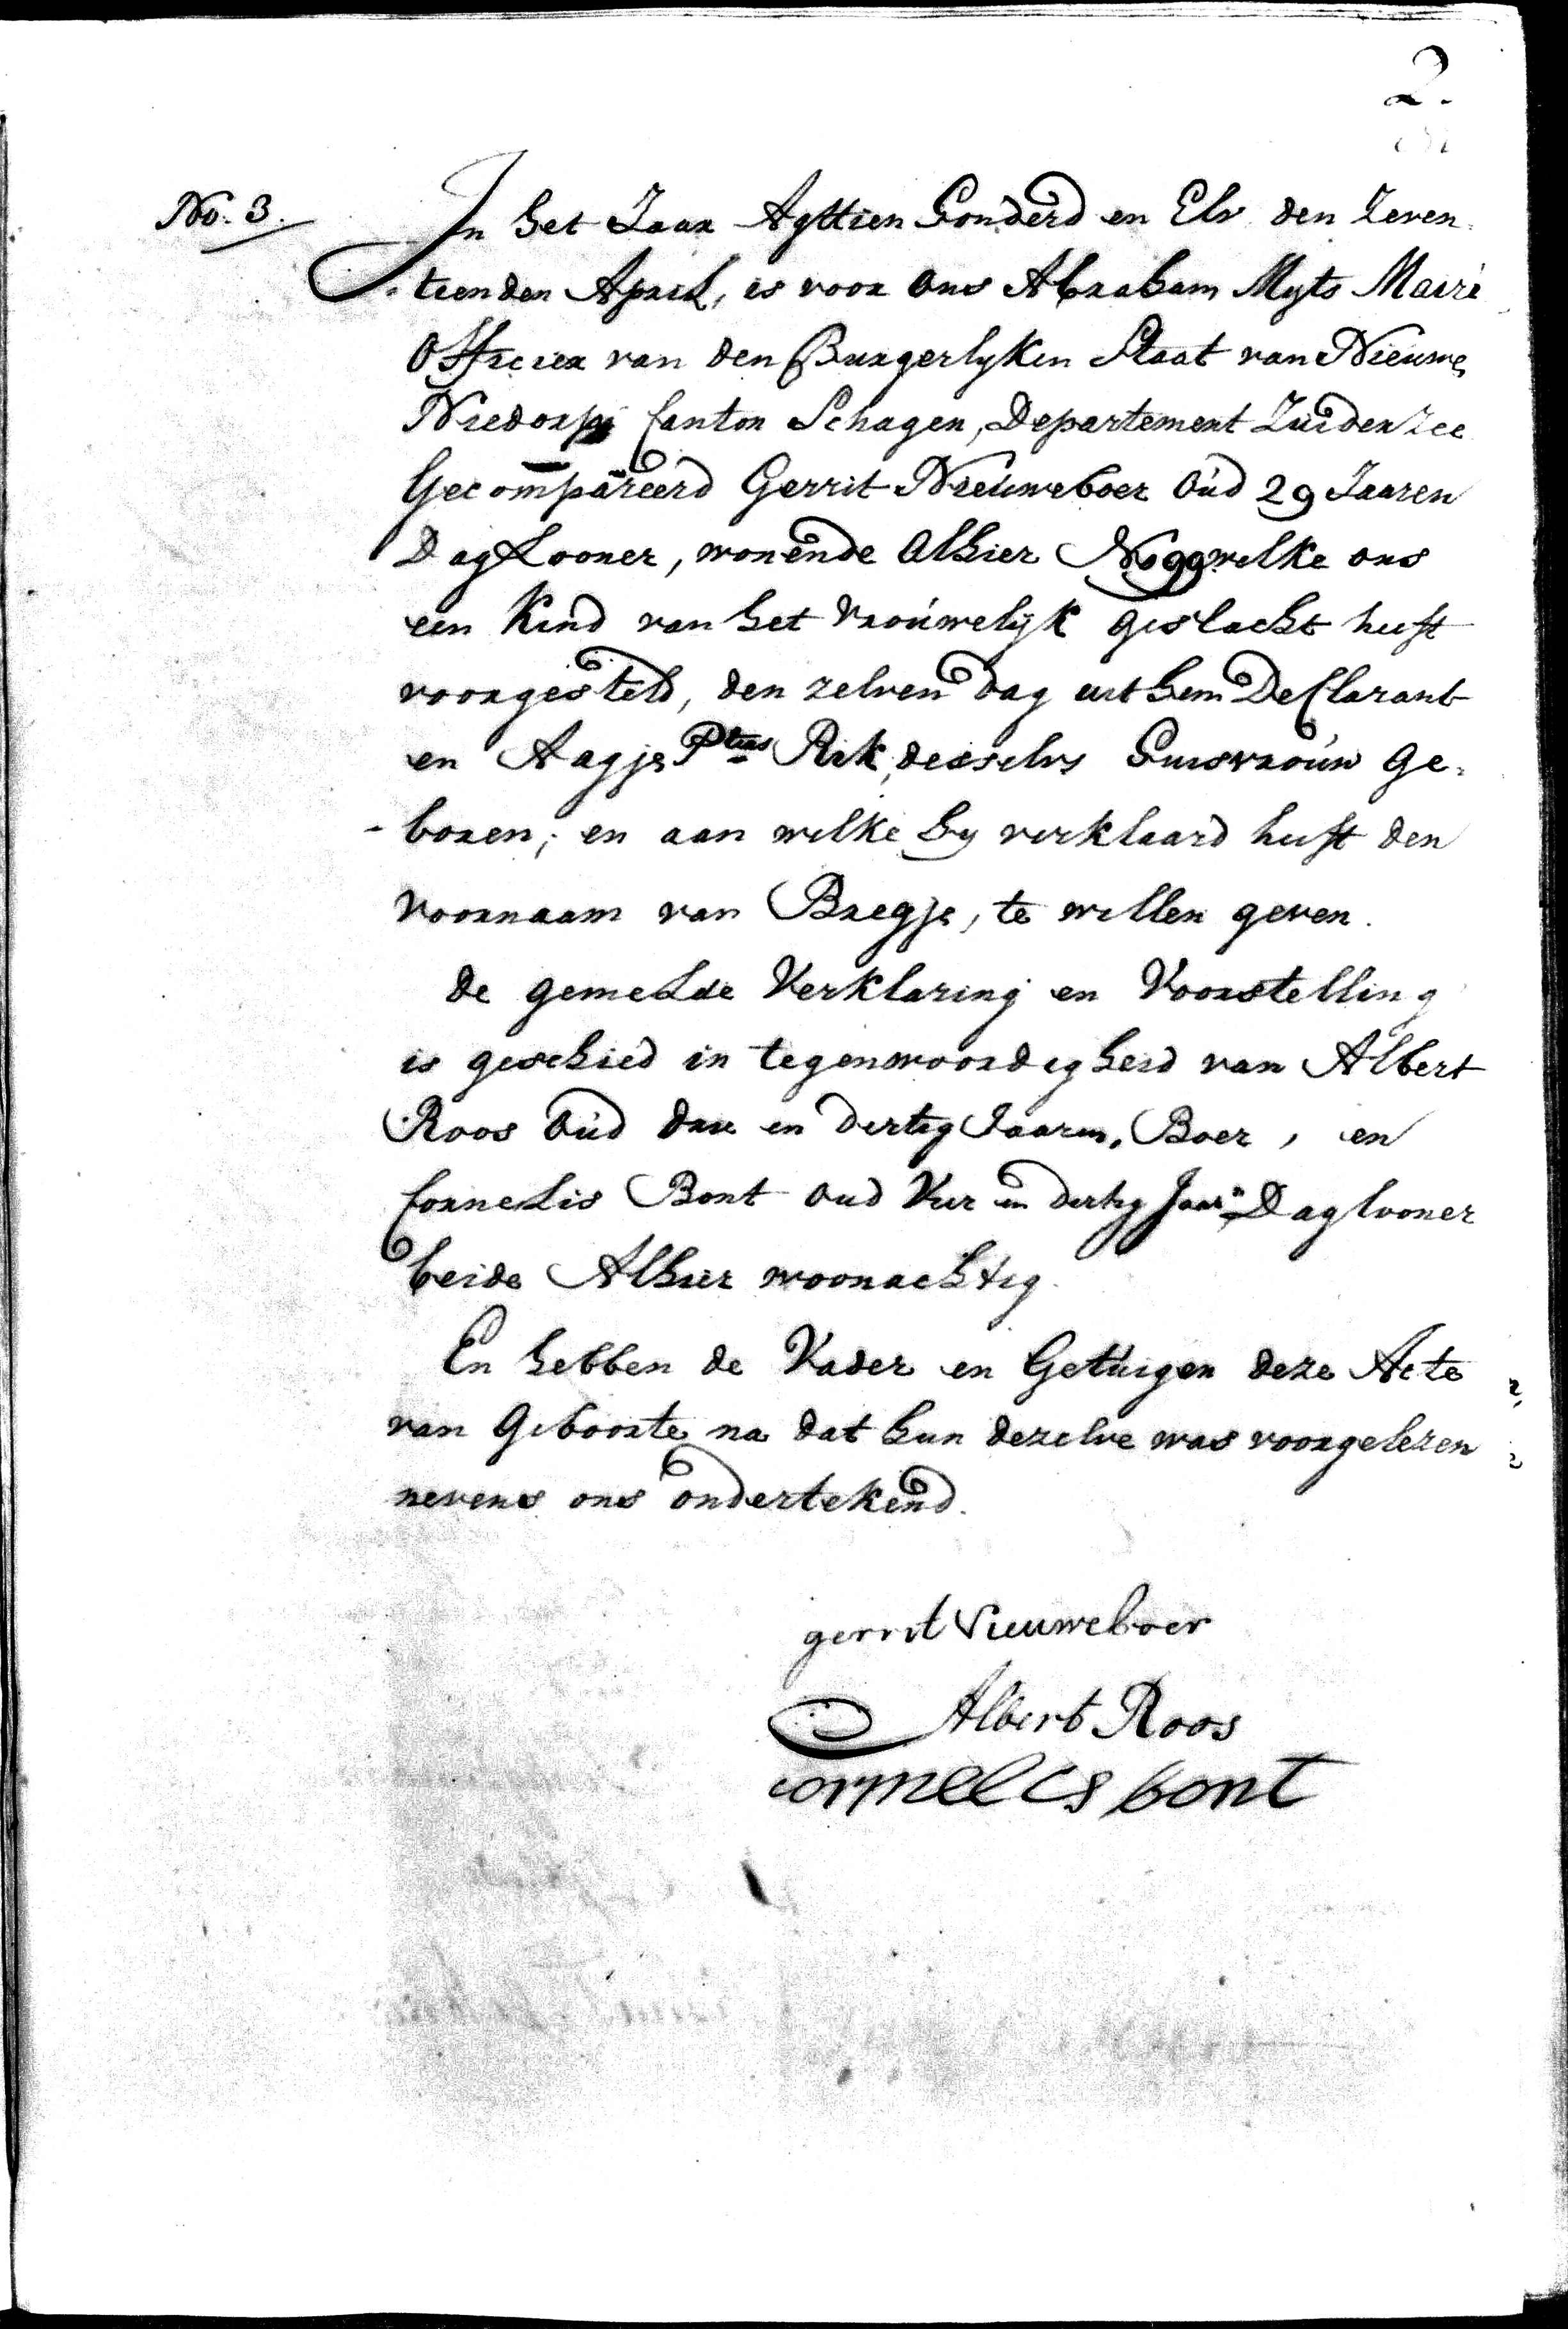 2.
No. 3.
In het Jaar Agttien honderd en Elv den Zeven
tienden April, is voor ons Abraham Myts Mairè
Officier van den Burgerlyken Staat van Nieuwe
Niedorp Canton Schagen, Departement Zuiderzee
Gecompareerd Gerrit Nieuweboer Oud 29 Jaaren
Daglooner, wonende Alhier No 99 welke ons
een Kind van het vrouwelijk geslacht heeft
voorgesteld, den zelven dag uit hem Declarant
en Aagje Pters Rek, deeselvs huisvrouw Ge-
boren; en aan welke hy verklaard heeft den
voornaam van Bregje, te willen geven.
de gemelde Verklaring en Voorstelling
is geschied in tegenwoordigheid van Albert
Roos Oud drie en dertig Jaaren, Boer, en
Cornelis Bont oud Vier en dertig Jaarn Daglooner
beide Alhier woonachtig.
En hebben de Vader en Getuigen deze Acte
van Geboorte na dat hun dezelve was voorgelezen
nevens ons ondertekend.
gerrit Nieuweboer
Albert Roos
cornelis bont